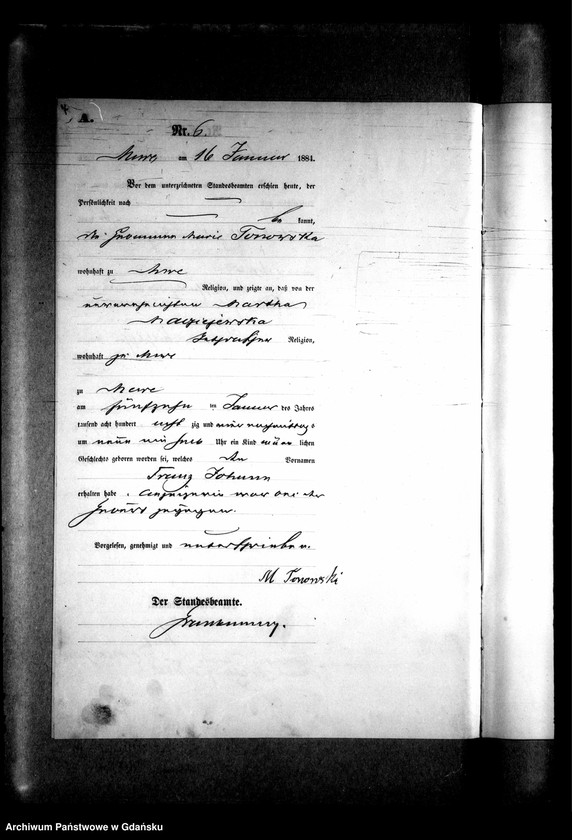 A.
Nr. 6.
Mewe am 16 Januar 1884.
Vor dem unterzeichneten Standesbeamten erschien heute, der
Persönlichkeit nach
be kannt,
die Hebamme Marie Tonowska
wohnhaft zu Mewe
Religion, und zeigte an, daß von der
unverehelichten Martha
Maciejewska
katholischer Religion,
wohnhaft zu Mewe
zu Mewe
am fünfzehn ten Januar des Jahres
tausend acht hundert acht zig und vier Nachmittags
um neun ein halb Uhr ein Kind männ lichen
Geschlechts geboren worden sei, welches die Vornamen
Franz Johann
erhalten habe. Anzeigerin war bei der
Geburt zugegen.
Vorgelesen, genehmigt und unterschrieben.
M Tonowski
Der Standesbeamte.
Archiwum Państwowe w Gdańsku